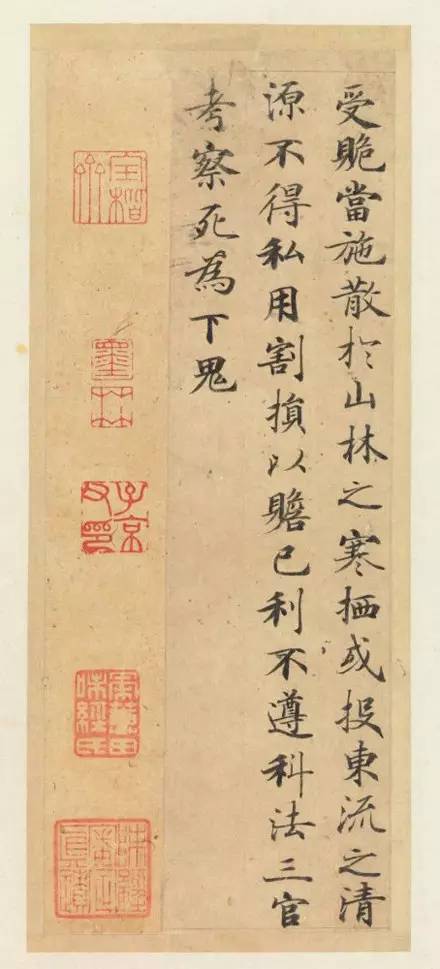 當施散於山林之寒栖或投東流之清
源不得私用割損以贍己利不遵科法三官
考察死為下鬼
子京父印